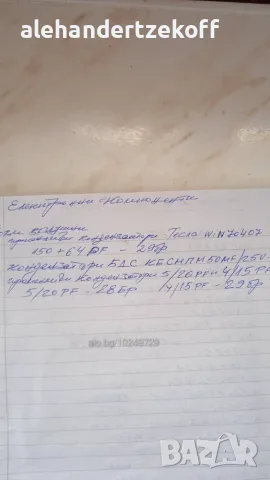 alehandertzekoff
Електронни Компоненти
въздушни
кондензатори Тесла WN70407
150+64PF - 29бр
Кондензатори БДС КЕСМПМ 50MF/25V-
кондензатори 5/20PF и 4/15PF
5/20PF - 28бр 4/15PF - 29бр
alo.bg:10249729
BAZAR